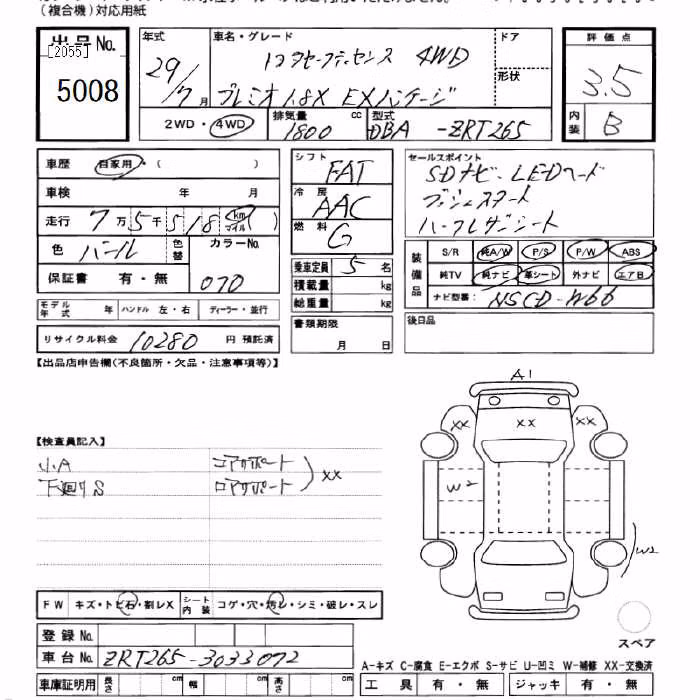 (複合機)対応用紙
出品No. [2055] 5008
年式 29/7月
車名・グレード トヨタセーフティセンス 4WD
プレミオ1.8X EXパッケージ
ドア
形状
2WD・4WD 排気量 1800 cc 型式 DBA -ZRT265
評価点 3.5
内装 B
車歴 自家用・( )
車検 年 月
走行 7万5千518 km マイル ( )
色 パール 色替 カラーNo. 070
保証書 有・無
モデル年式 年 ハンドル 左・右 ディーラー・並行
リサイクル料金 10280 円 預託済
シフト FAT
冷房 AAC
燃料 G
乗車定員 5 名
積載量 kg
総重量 kg
書類期限
月 日
セールスポイント
SDナビ・LEDヘード
プッシュスタート
ハーフレザーシート
装備品 S/R 純A/W P/S P/W ABS
純TV 純ナビ 革シート 外ナビ エアB
ナビ型番: NSCD-W66
後日品
【出品店申告欄(不良箇所・欠品・注意事項等)】
【検査員記入】
小A コアサポート
下廻りS ロアサポート ) XX
A1
XX XX XX
W2
W2
FW キズ・トビ石・割レX シート内装 コゲ・穴・汚レ・シミ・破レ・スレ
登録No.
車台No. ZRT265-3033072
車庫証明用 長さ cm 幅 cm 高さ cm
スペア
A-キズ C-腐食 E-エクボ S-サビ U-凹ミ W-補修 XX-交換済
工具 有・無 ジャッキ 有・無